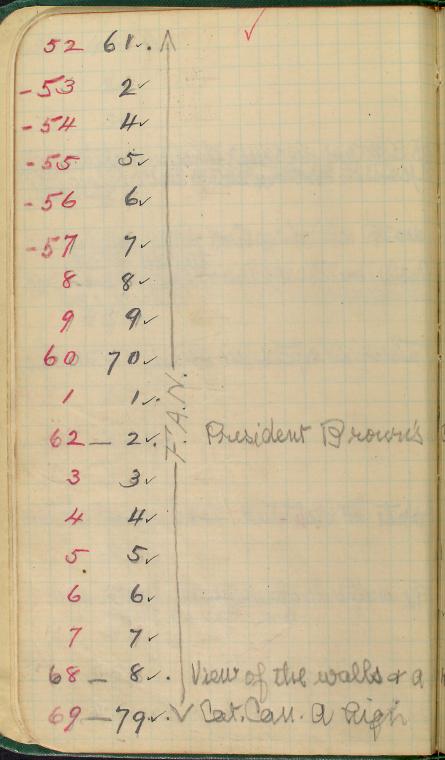 52 61.
-53 2
-54 4
-55 5
-56 6
-57 7
8 8
9 9
60 70
1 1.
62 — 2. President Brown's
3 3
4 4
5 5
6 6
7 7
68 — 8. View of the walls & a
69 — 79. Cat. Can. a high
F.A.N.